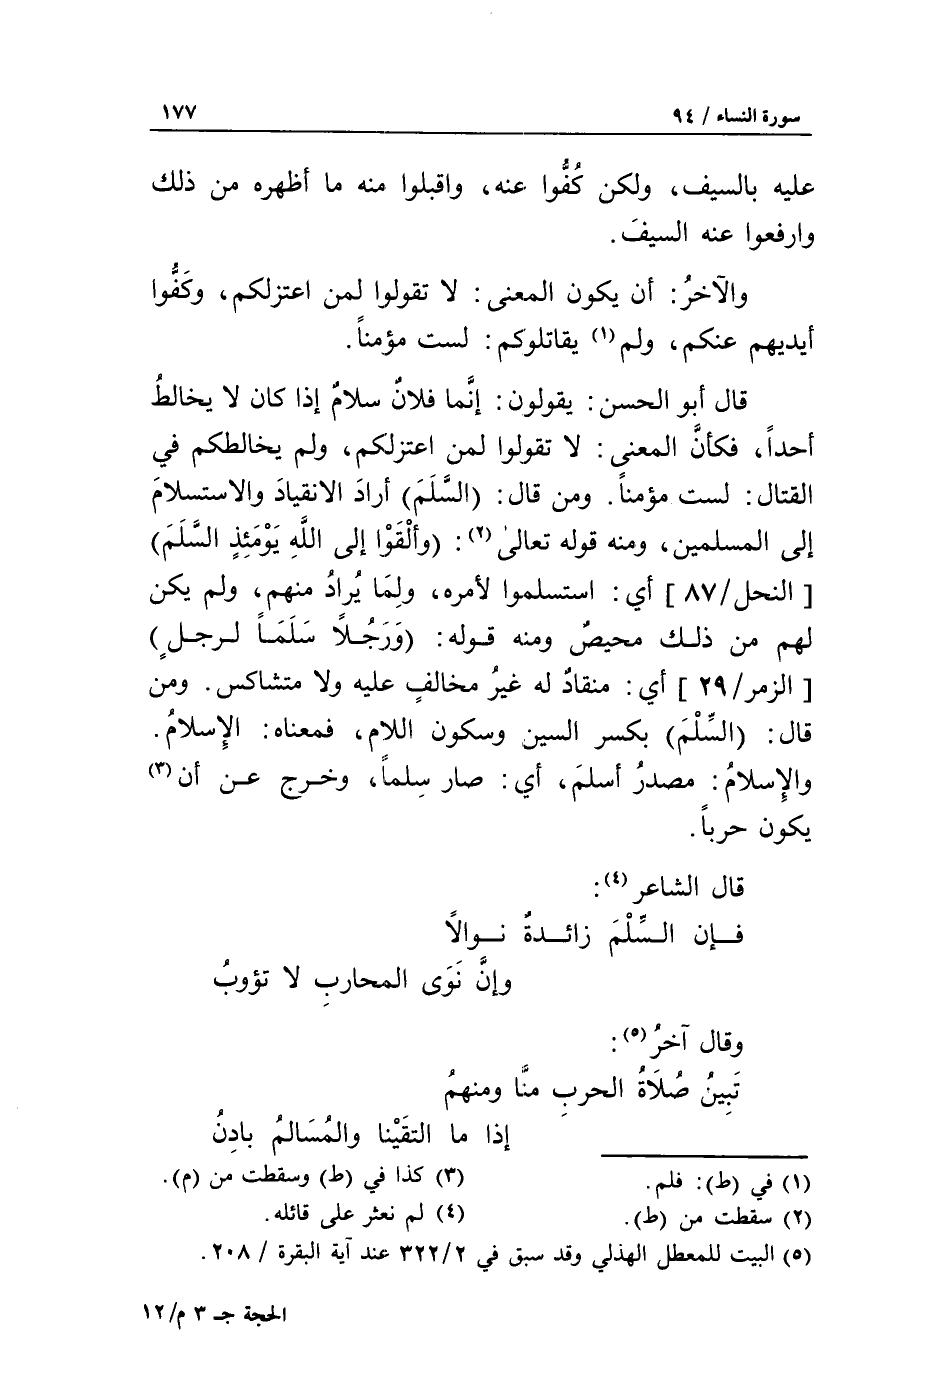 سورة النساء / ٩٤ ١٧٧
عليه بالسيف، ولكن كُفُّوا عنه، واقبلوا منه ما أظهره من ذلك
وارفعوا عنه السيفَ.
والآخرُ: أن يكون المعنى: لا تقولوا لمن اعتزلكم، وكَفُّوا
أيديهم عنكم، ولم(١) يقاتلوكم: لست مؤمناً.
قال أبو الحسن: يقولون: إنَّما فلانٌ سلامٌ إذا كان لا يخالطُ
أحداً، فكأنَّ المعنى: لا تقولوا لمن اعتزلكم، ولم يخالطكم في
القتال: لست مؤمناً. ومن قال: (السَّلَمَ) أرادَ الانقيادَ والاستسلامَ
إلى المسلمين، ومنه قوله تعالىٰ(٢): (وألْقَوْا إلى اللَّهِ يَوْمَئِذٍ السَّلَمَ)
[ النحل/٨٧ ] أي: استسلموا لأمره، ولِمَا يُرادُ منهم، ولم يكن
لهم من ذلك محيصٌ ومنه قوله: (وَرَجُلاً سَلَمَاً لرجلٍ)
[ الزمر/٢٩ ] أي: منقادٌ له غيرُ مخالفٍ عليه ولا متشاكس. ومن
قال: (السِّلْمَ) بكسر السين وسكون اللام، فمعناه: الإِسلامُ.
والإِسلامُ: مصدرُ أسلمَ، أي: صار سِلماً، وخرج عن أن(٣)
يكون حرباً.
قال الشاعر(٤):
فإن السِّلْمَ زائدةٌ نوالاً
وإنَّ نَوَى المحاربِ لا تؤوبُ
وقال آخرُ(٥):
تَبِينُ صُلَاةُ الحربِ منَّا ومنهمُ
إذا ما التقَيْنا والمُسَالمُ بادِنُ
(١) في (ط): فلم.
(٢) سقطت من (ط).
(٣) كذا في (ط) وسقطت من (م).
(٤) لم نعثر على قائله.
(٥) البيت للمعطل الهذلي وقد سبق في ٣٢٢/٢ عند آية البقرة / ٢٠٨.
الحجة جـ ٣ م/١٢